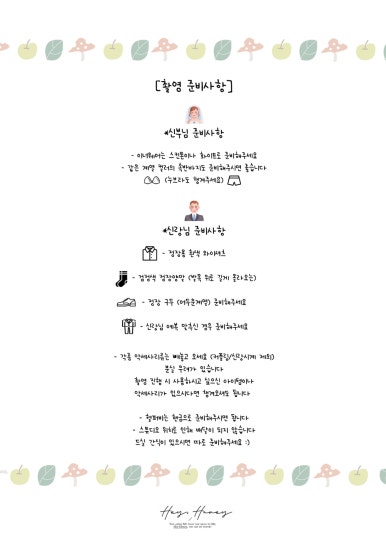 [촬영 준비사항]
*신부님 준비사항
- 이너웨어는 스킨톤이나 화이트로 준비해주세요
- 같은 계열 컬러의 속바지도 준비해주시면 좋습니다
(누브라도 챙겨주세요)
*신랑님 준비사항
- 정장용 흰색 와이셔츠
- 검정색 정장양말 (발목 위로 길게 올라오는)
- 정장 구두 (어두운계열) 준비해주세요
- 신랑님 예복 맞추신 경우 준비해주세요
- 각종 악세사리류는 빼놓고 오세요 (커플링/신랑시계 제외)
분실 우려가 있습니다
촬영 진행 시 사용하시고 싶으신 아이템이나
악세사리가 있으시다면 챙겨오셔도 됩니다
- 헬퍼비는 현금으로 준비해주시면 됩니다
- 스튜디오 위치로 인해 배달이 되지 않습니다
드실 간식이 있으시면 따로 준비해주세요 :)
Hey, Honey